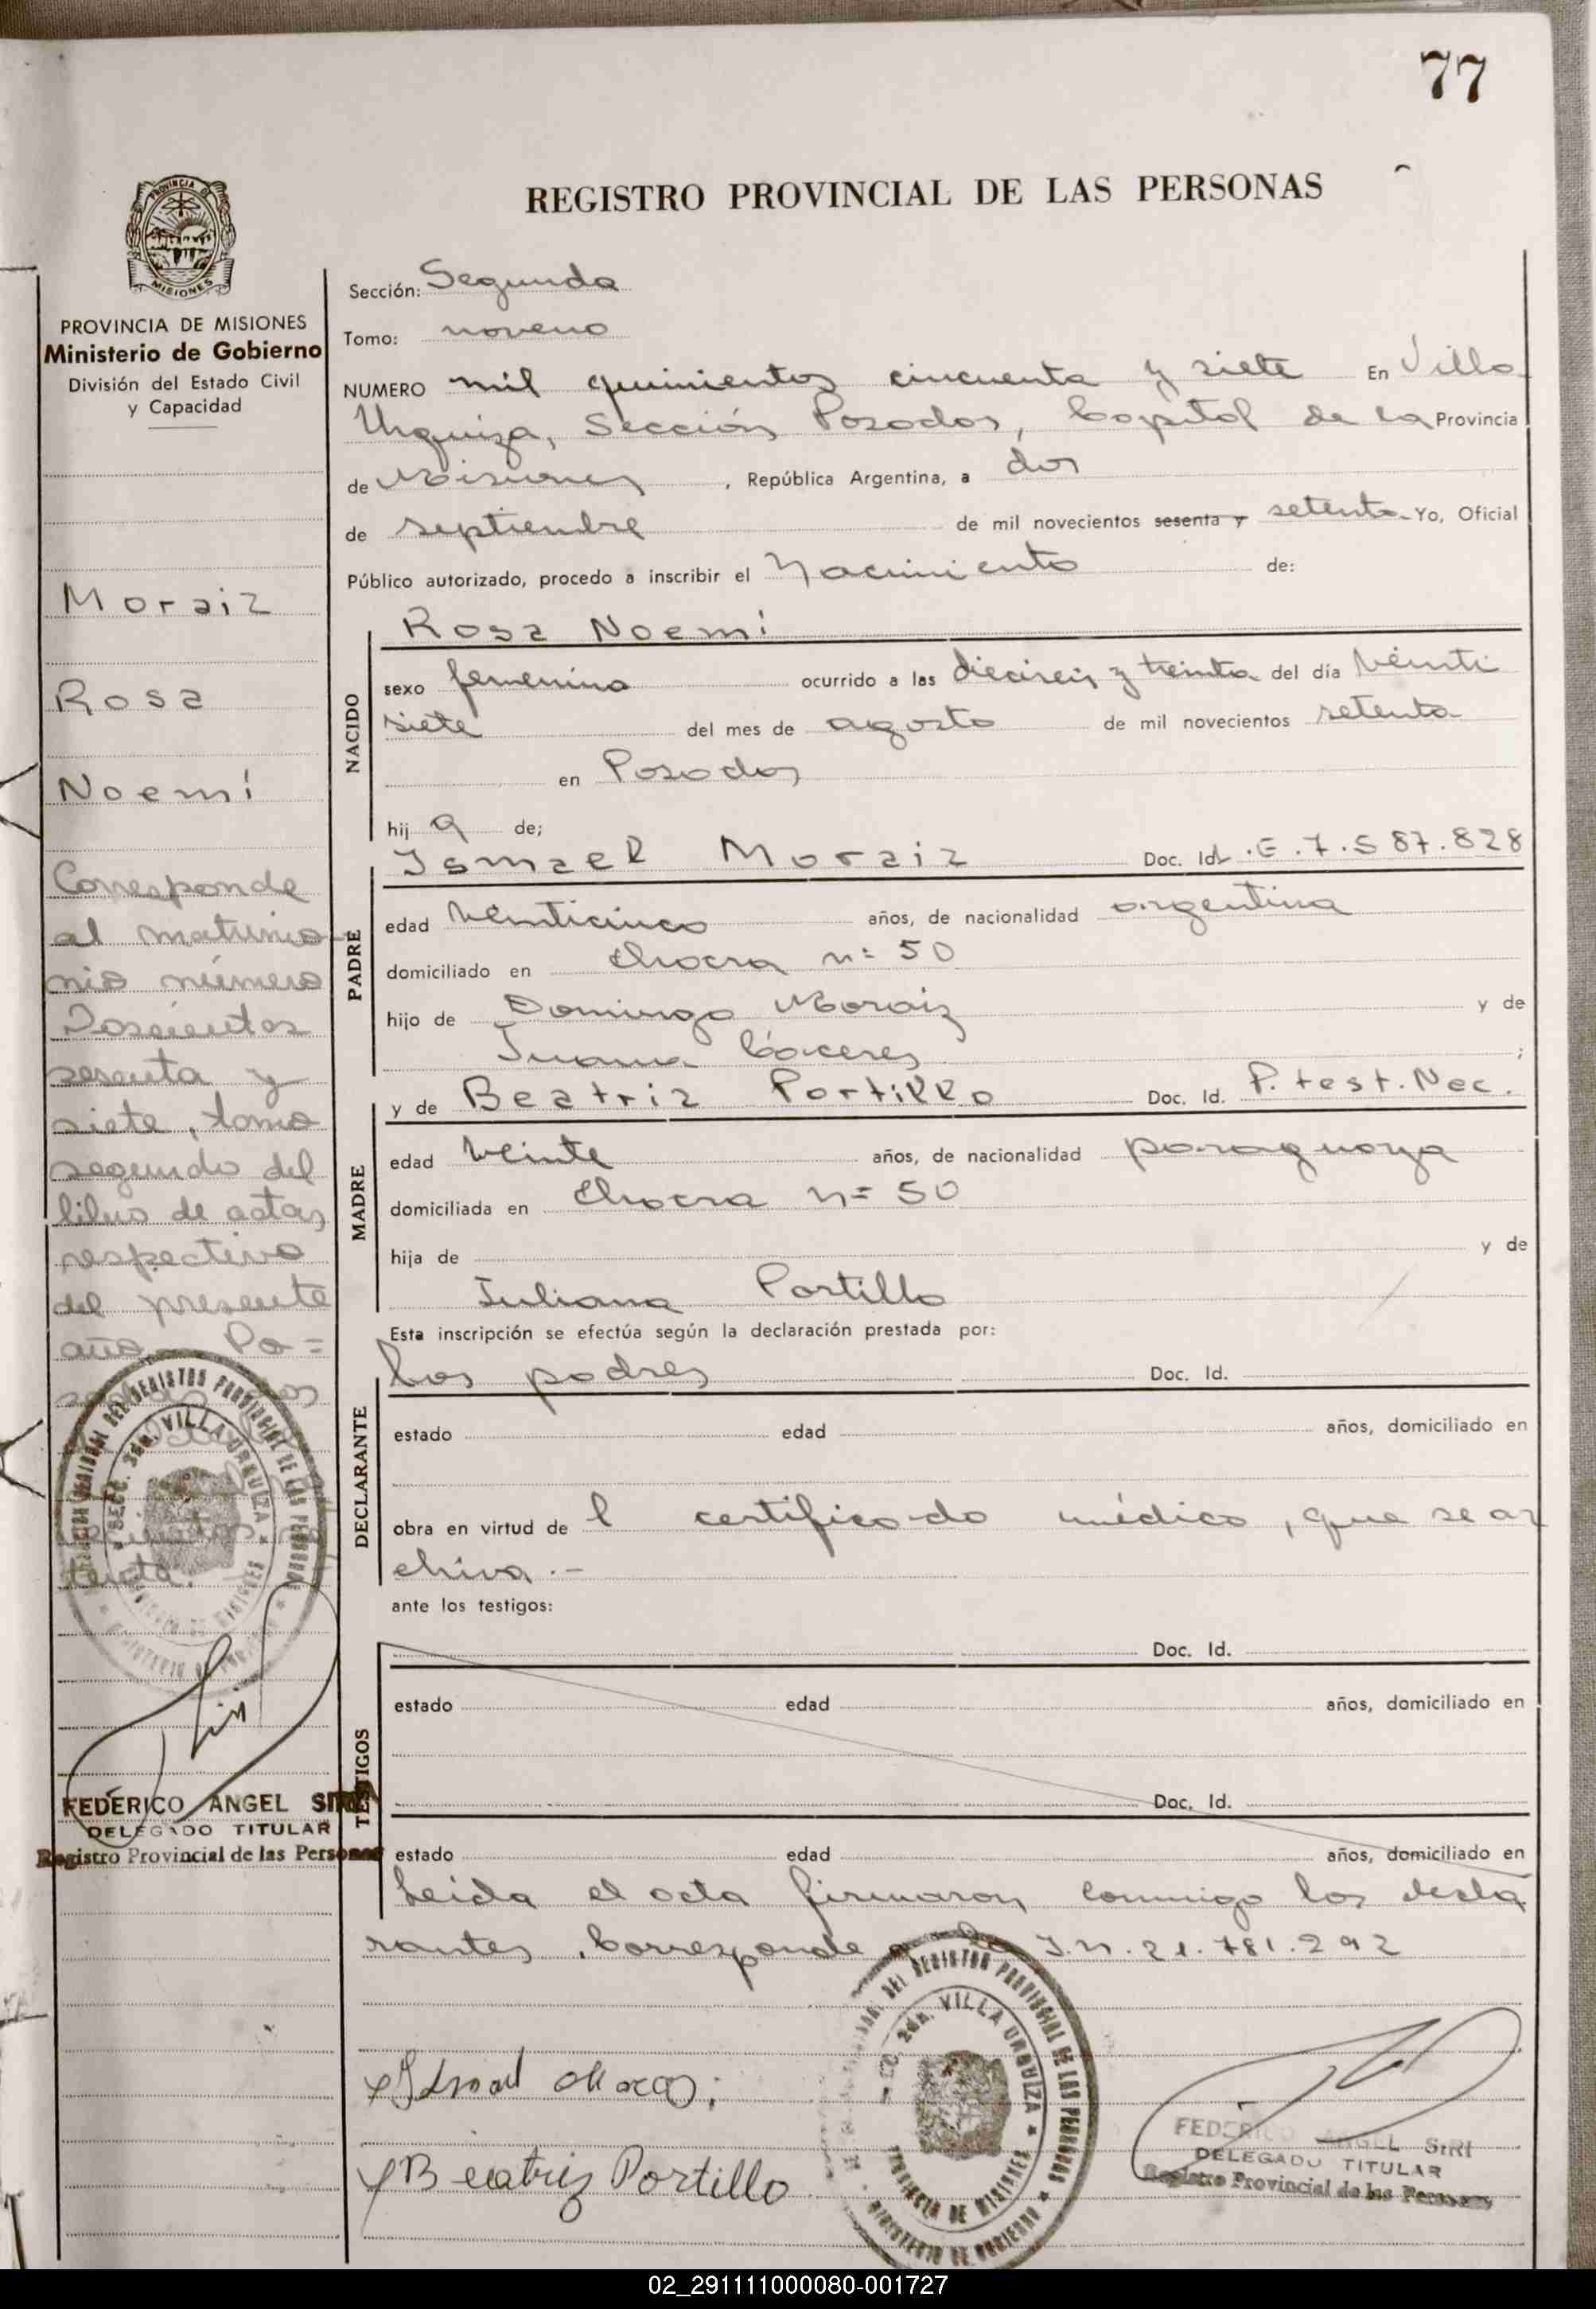 77
REGISTRO PROVINCIAL DE LAS PERSONAS
PROVINCIA DE MISIONES
Ministerio de Gobierno
División del Estado Civil
y Capacidad
Moraiz
Rosa
Noemí
Corresponde
al matrimo-
nio número
Doscientos
sesenta y
siete, tomo
segundo del
libro de actas
respectivo
del presente
año. Po=
tenta.
FEDERICO ANGEL SIRI
DELEGADO TITULAR
Registro Provincial de las Personas
Sección: Segunda
Tomo: noveno
NUMERO mil quinientos cincuenta y siete En Villa
Urquiza, Sección Posadas, Capital de la Provincia
de Misiones, República Argentina, a dos
de septiembre de mil novecientos sesenta y setenta Yo, Oficial
Público autorizado, procedo a inscribir el Nacimiento de:
NACIDO
Rosa Noemí
sexo femenino ocurrido a las dieciseis y treinta del día veinti
siete del mes de agosto de mil novecientos setenta
en Posadas
hij a de;
PADRE
Ismael Moraiz Doc. Id. L.E. 7.587.828
edad veinticinco años, de nacionalidad argentina
domiciliado en Chacra nº 50
hijo de Domingo Moraiz y de
Juana Cáceres ;
MADRE
y de Beatriz Portillo Doc. Id. P. test. Nec.
edad veinte años, de nacionalidad paraguaya
domiciliada en Chacra nº 50
hija de y de
Juliana Portillo
Esta inscripción se efectúa según la declaración prestada por:
DECLARANTE
Los padres Doc. Id.
estado edad años, domiciliado en
obra en virtud de l certificado médico, que se ar
chiva.-
ante los testigos:
TESTIGOS
Doc. Id.
estado edad años, domiciliado en
Doc. Id.
estado edad años, domiciliado en
Leida el acta firmaron conmigo los decla
rantes. Corresponde a la I.N. 21.781.292
Beatriz Portillo
FEDERICO ANGEL SIRI
DELEGADO TITULAR
Registro Provincial de las Personas
02_291111000080-001727